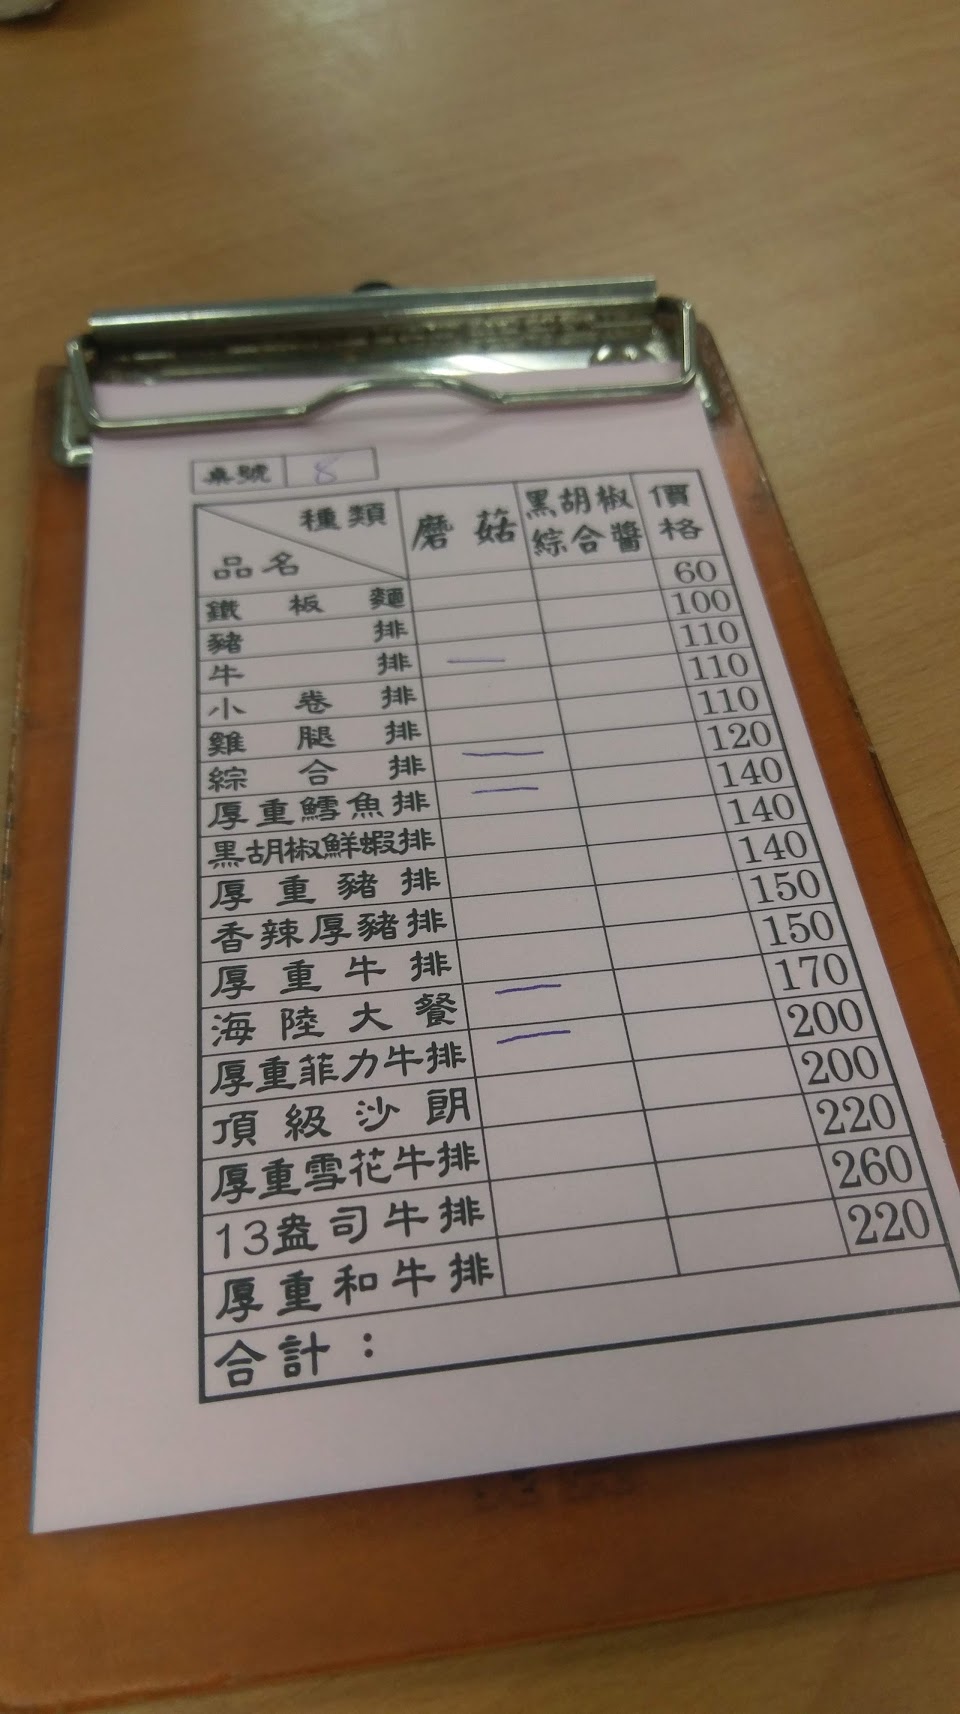 桌號 8
種類 磨菇 黑胡椒綜合醬 價格
品名
鐵板麵 60
豬排 100
牛排 一 110
小卷排 110
雞腿排 110
綜合排 一 120
厚重鱈魚排 一 140
黑胡椒鮮蝦排 140
厚重豬排 140
香辣厚豬排 150
厚重牛排 150
海陸大餐 一 170
厚重菲力牛排 一 200
頂級沙朗 200
厚重雪花牛排 220
13盎司牛排 260
厚重和牛排 220
合計：